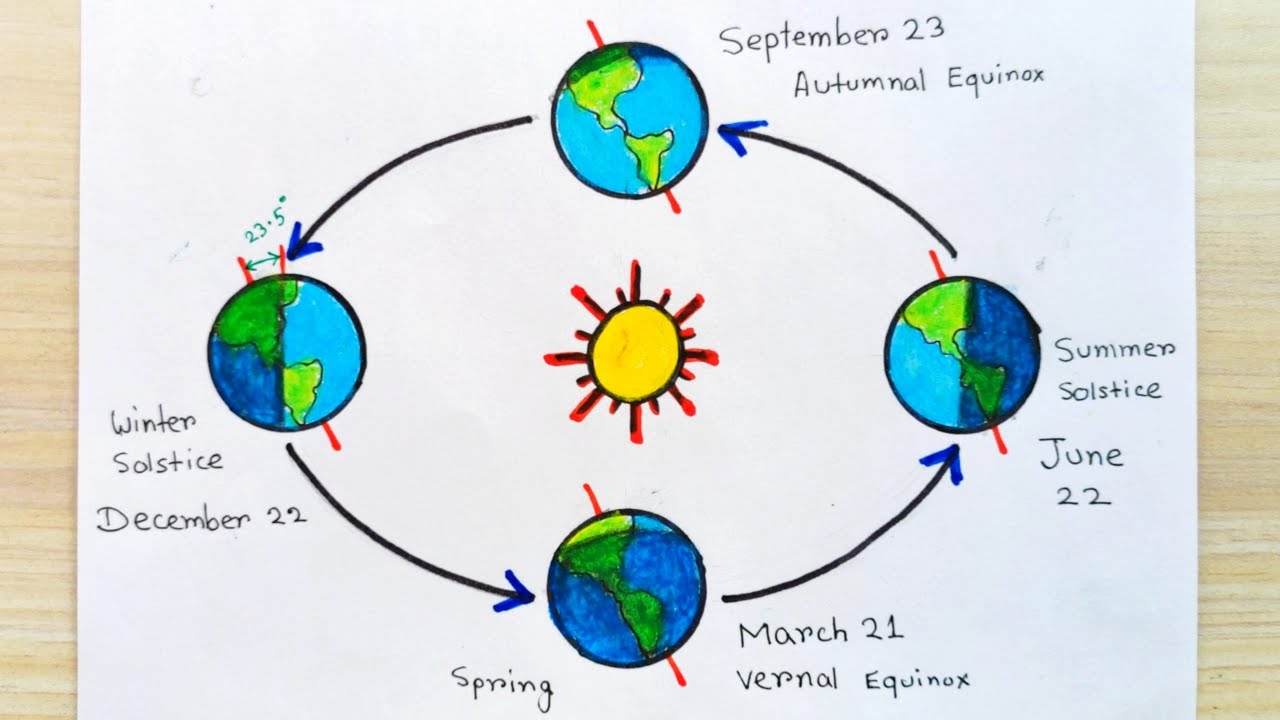 September 23
Autumnal Equinox
23.5°
Summer
Solstice
June
22
Winter
Solstice
December 22
March 21
Vernal Equinox
Spring